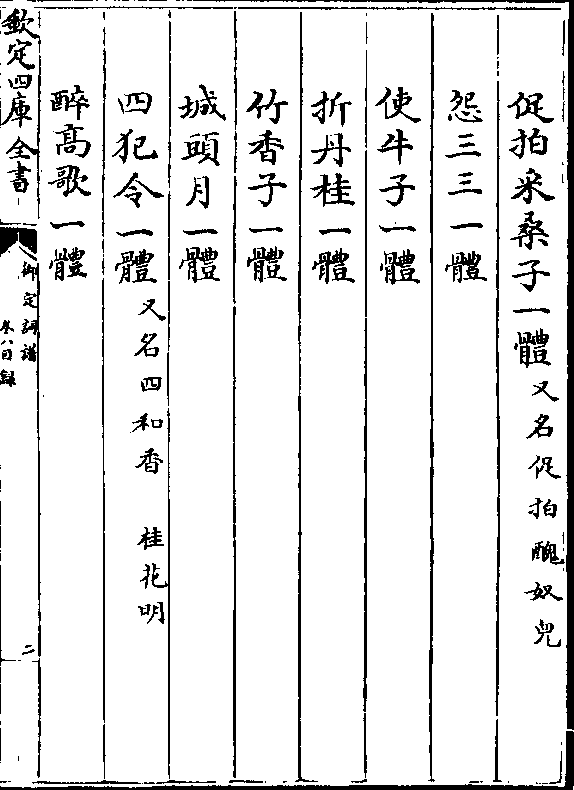 促拍采桑子一體又名促拍醜奴兒
怨三三一體
使牛子一體
折丹桂一體
竹香子一體
城頭月一體
四犯令一體又名四和香 桂花明
醉髙歌一體
欽定四庫全書
御定詞譜
卷八目錄
二